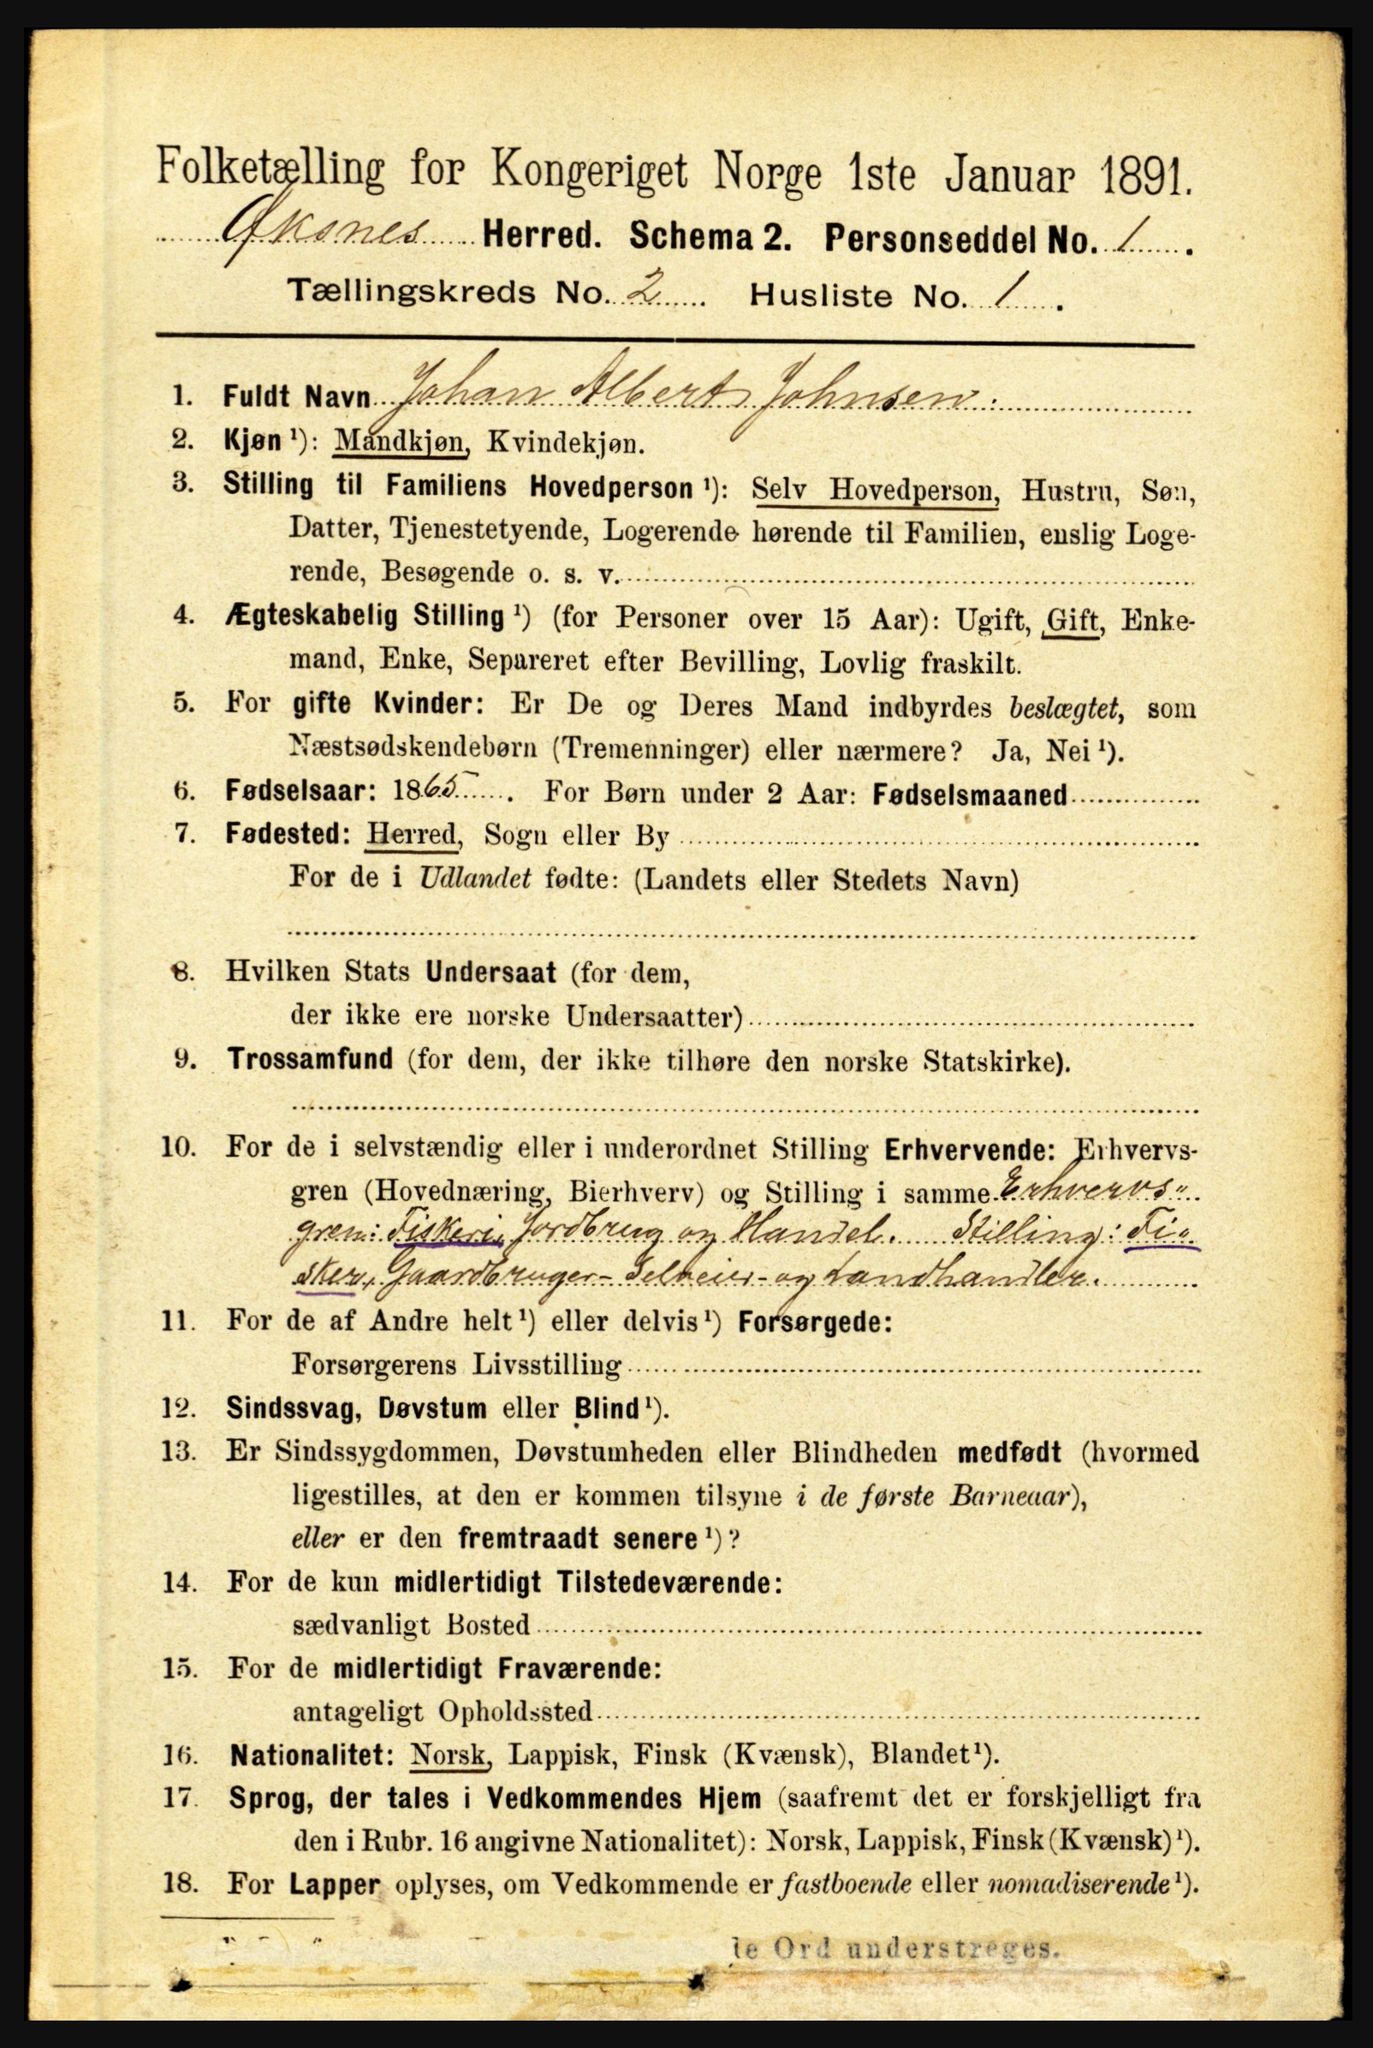 Folketælling for Kongeriget Norge 1ste Januar 1891.
Øksnes Herred. Schema 2. Personseddel No. 1.
Tællingskreds No. 2 Husliste No. 1.
1. Fuldt Navn Johan Albert Johnsen.
2. Kjøn ¹): Mandkjøn, Kvindekjøn.
3. Stilling til Familiens Hovedperson ¹): Selv Hovedperson, Hustru, Søn,
Datter, Tjenestetyende, Logerende hørende til Familien, enslig Loge-
rende, Besøgende o. s. v.
4. Ægteskabelig Stilling ¹) (for Personer over 15 Aar): Ugift, Gift, Enke-
mand, Enke, Separeret efter Bevilling, Lovlig fraskilt.
5. For gifte Kvinder: Er De og Deres Mand indbyrdes beslægtet, som
Næstsødskendebørn (Tremenninger) eller nærmere? Ja, Nei ¹).
6. Fødselsaar: 1865. For Børn under 2 Aar: Fødselsmaaned
7. Fødested: Herred, Sogn eller By
For de i Udlandet fødte: (Landets eller Stedets Navn)
8. Hvilken Stats Undersaat (for dem,
der ikke ere norske Undersaatter)
9. Trossamfund (for dem, der ikke tilhøre den norske Statskirke).
10. For de i selvstændig eller i underordnet Stilling Erhvervende: Erhvervs-
gren (Hovednæring, Bierhverv) og Stilling i samme Erhvervs-
gren: Fiskeri, Jordbrug og Handel. Stilling: Fi-
sker, Gaardbruger-Selveier- og Landhandler.
11. For de af Andre helt ¹) eller delvis ¹) Forsørgede:
Forsørgerens Livsstilling
12. Sindssvag, Døvstum eller Blind ¹).
13. Er Sindssygdommen, Døvstumheden eller Blindheden medfødt (hvormed
ligestilles, at den er kommen tilsyne i de første Barneaar),
eller er den fremtraadt senere ¹)?
14. For de kun midlertidigt Tilstedeværende:
sædvanligt Bosted
15. For de midlertidigt Fraværende:
antageligt Opholdssted
16. Nationalitet: Norsk, Lappisk, Finsk (Kvænsk), Blandet ¹).
17. Sprog, der tales i Vedkommendes Hjem (saafremt det er forskjelligt fra
den i Rubr. 16 angivne Nationalitet): Norsk, Lappisk, Finsk (Kvænsk) ¹).
18. For Lapper oplyses, om Vedkommende er fastboende eller nomadiserende ¹).
le Ord understreges.